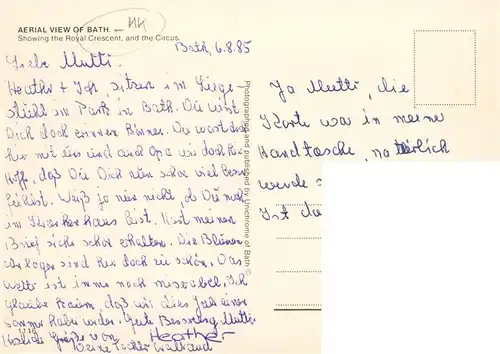 AERIAL VIEW OF BATH.
Showing the Royal Crescent, and the Circus.
Bath, 6.8.85
Liebe Mutti.
Heather + Ich, sitzen im Liege-
stühl im Park in Bath. Du wirst
Dich doch errinern können. Du warst doch
hier mit uns und auch Opa wir doch hier
Hoff, daß Du Dich nun schon viel besser
fühlst. Weiß ja nier nicht, ob Du noch
im Krankenhaus bist. Hast meinen
Brief sicher schon erhalten. Die Blumen
anlagen sind hier doch zu schön. Das
wett ist immer noch miserabel. Ich
glaube kaum, daß wir dies Jahr einen
sommer haben werden. Gute Besserung Mutti.
Herzliche Grüße von Heather
Deine Tochter Waltraud
1116
Photographed and published by Unichrome of Bath ©
Ja Mutti, die
Karte war in meine
Handtasche, natürlich
werde
Ist du